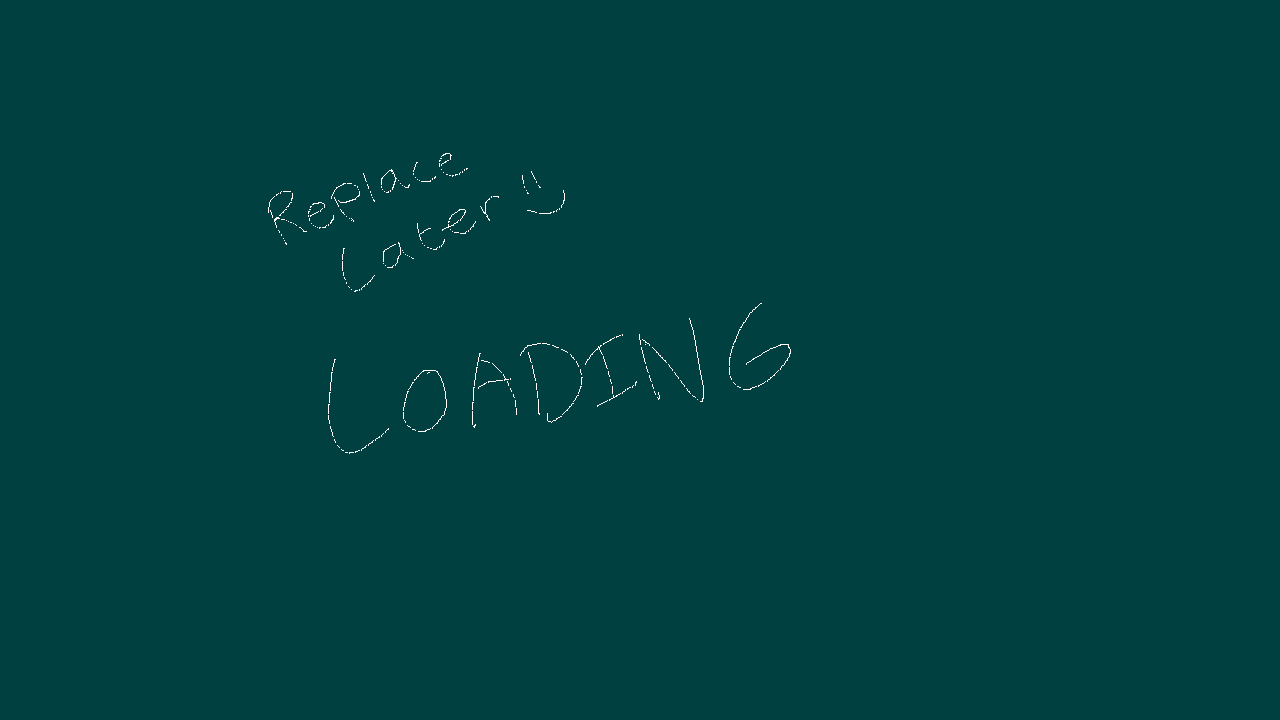 Replace
Later :)
LOADING